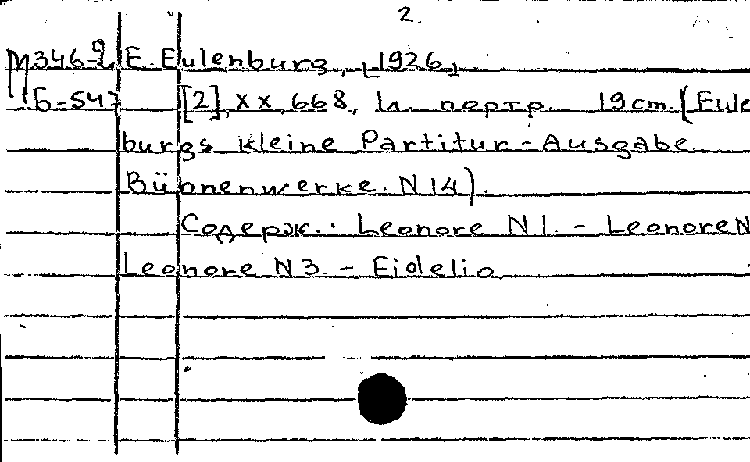 2.
М346-2 E. Eulenburg, [1926]
Б-547 [2], XX, 668, 1 л. портр. 19 cm. (Eule
burgs kleine Partitur-Ausgabe.
Bühnenwerke. N 14).
Содерж.: Leonore N 1. - Leonore N
Leonore N 3. - Fidelio